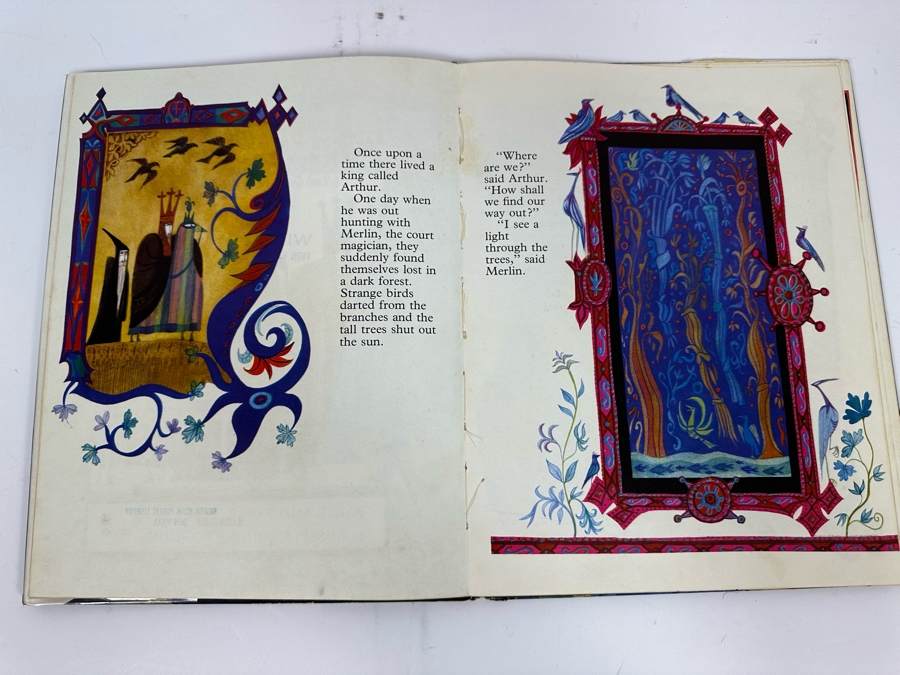 Once upon a
time there lived a
king called
Arthur.
One day when
he was out
hunting with
Merlin, the court
magician, they
suddenly found
themselves lost in
a dark forest.
Strange birds
darted from the
branches and the
tall trees shut out
the sun.
“Where
are we?”
said Arthur.
“How shall
we find our
way out?”
“I see a
light
through the
trees,” said
Merlin.